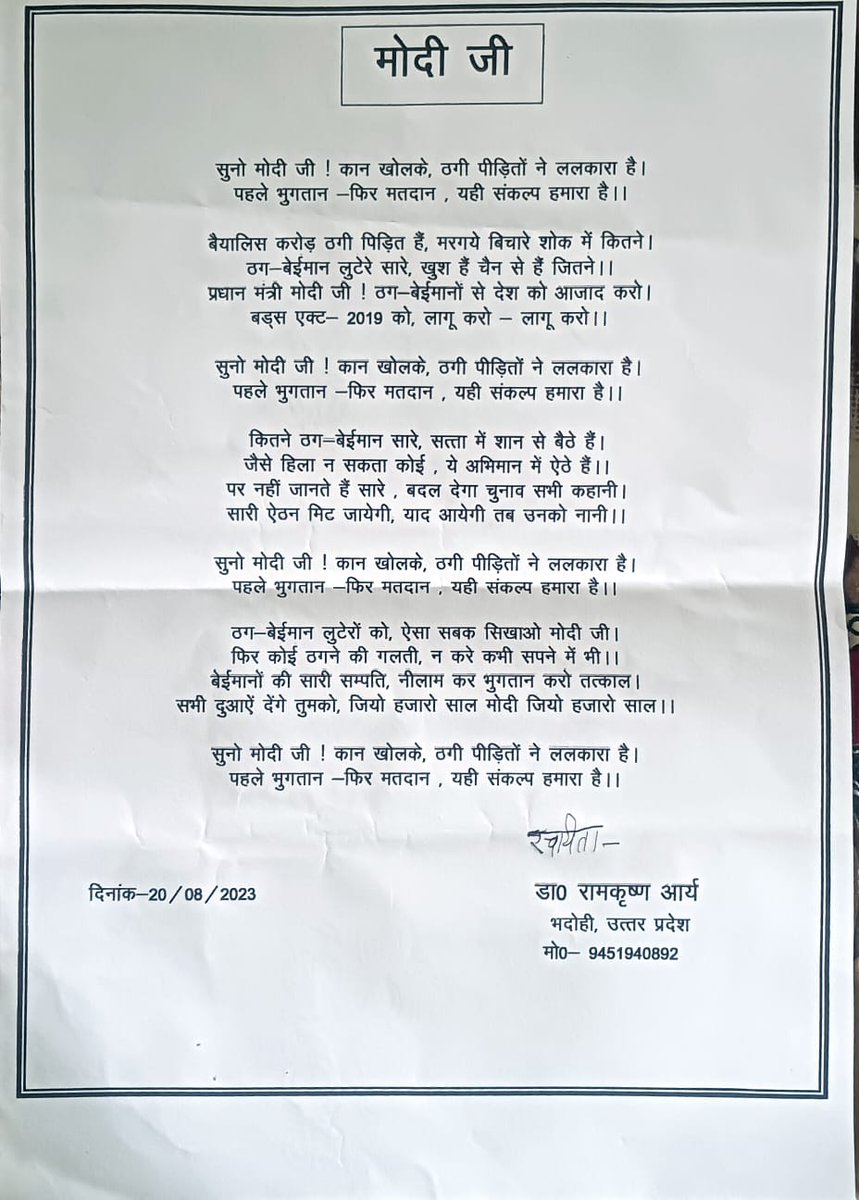 मोदी जी
सुनो मोदी जी ! कान खोलके, ठगी पीड़ितों ने ललकारा है।
पहले भुगतान –फिर मतदान , यही संकल्प हमारा है।।
बैयालिस करोड़ ठगी पिड़ित हैं, मरगये बिचारे शोक में कितने।
ठग–बेईमान लुटेरे सारे, खुश हैं चैन से हैं जितने।।
प्रधान मंत्री मोदी जी ! ठग–बेईमानों से देश को आजाद करो।
बड्स एक्ट– 2019 को, लागू करो – लागू करो।।
सुनो मोदी जी ! कान खोलके, ठगी पीड़ितों ने ललकारा है।
पहले भुगतान –फिर मतदान , यही संकल्प हमारा है।।
कितने ठग–बेईमान सारे, सत्ता में शान से बैठे हैं।
जैसे हिला न सकता कोई , ये अभिमान में ऐठे हैं।।
पर नहीं जानते हैं सारे , बदल देगा चुनाव सभी कहानी।
सारी ऐठन मिट जायेगी, याद आयेगी तब उनको नानी।।
सुनो मोदी जी ! कान खोलके, ठगी पीड़ितों ने ललकारा है।
पहले भुगतान –फिर मतदान , यही संकल्प हमारा है।।
ठग–बेईमान लुटेरों को, ऐसा सबक सिखाओ मोदी जी।
फिर कोई ठगने की गलती, न करे कभी सपने में भी।।
बेईमानों की सारी सम्पति, नीलाम कर भुगतान करो तत्काल।
सभी दुआऐं देंगे तुमको, जियो हजारो साल मोदी जियो हजारो साल।।
सुनो मोदी जी ! कान खोलके, ठगी पीड़ितों ने ललकारा है।
पहले भुगतान –फिर मतदान , यही संकल्प हमारा है।।
रचयिता–
दिनांक–20/08/2023
डा0 रामकृष्ण आर्य
भदोही, उत्तर प्रदेश
मो0– 9451940892